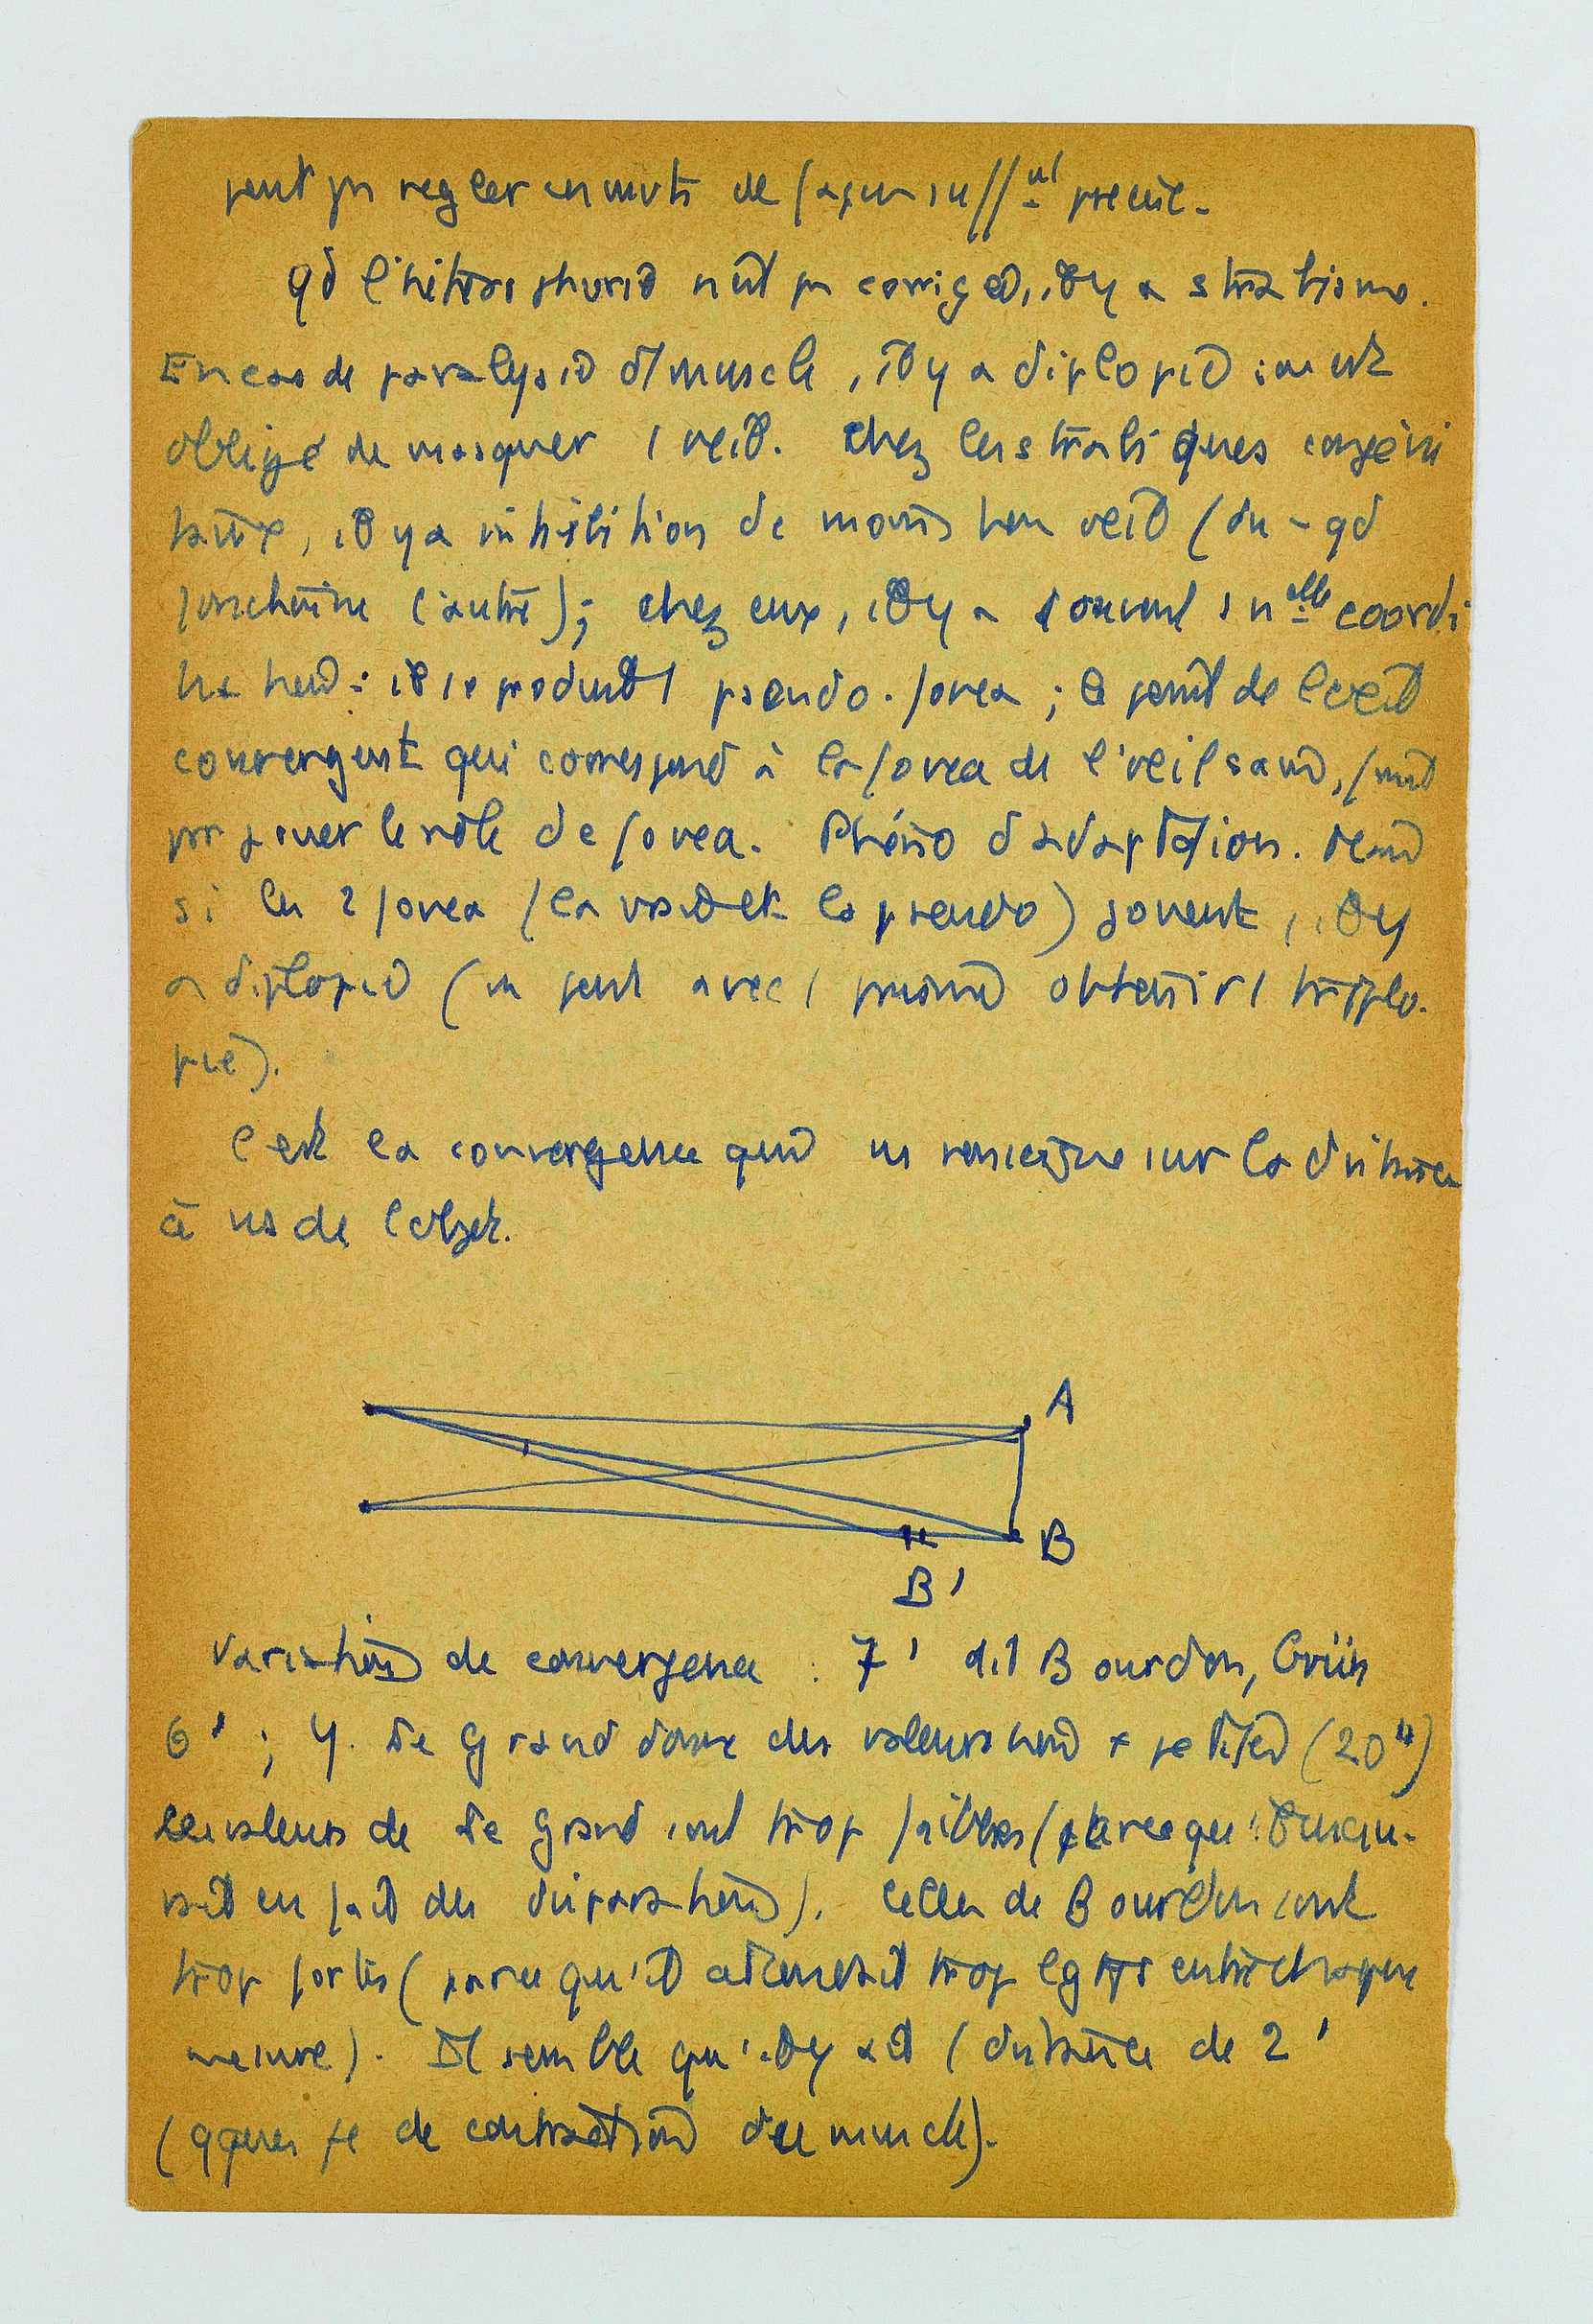 peut pas regler ces mvts de façon su//nt precise.
qd l'hétérophorie n'est pas corrigée, il y a strabisme.
En cas de paralysie d'1 muscle, il y a diplopie : on est
obligé de masquer 1 œil. Chez les strabiques congéni
taux, il y a inhibition de l'œil (
l'autre); chez eux, il y a souvent 1 nelle coordi
nation : il se produit 1 pseudo-fovea ; le point de l'œil
convergent qui correspond à la fovea de l'œil sain, finit
par jouer le rôle de fovea. Phéno d'adaptation.
si les 2 fovea (la vraie et la pseudo) jouent, il y
a diplopie (on peut avec 1 prisme obtenir 1 triplo-
pie).
C'est la convergence qui ns renseigne sur la distance
à ns de l'objet.
A
B
B'
Variation de convergence : 7' dit Bourdon, Grün
6' ; Y. Le Grand donne des valeurs bien + petites (20")
Les valeurs de Le Grand sont trop faibles (parce qu'il mesu-
rait en fait des disparations). Celles de Bourdon sont
trop fortes (parce qu'il attendait trop lgtps entre chaque
mesure). Il semble qu'il y ait 1 distance de 2'
(qques de contraction du muscle).